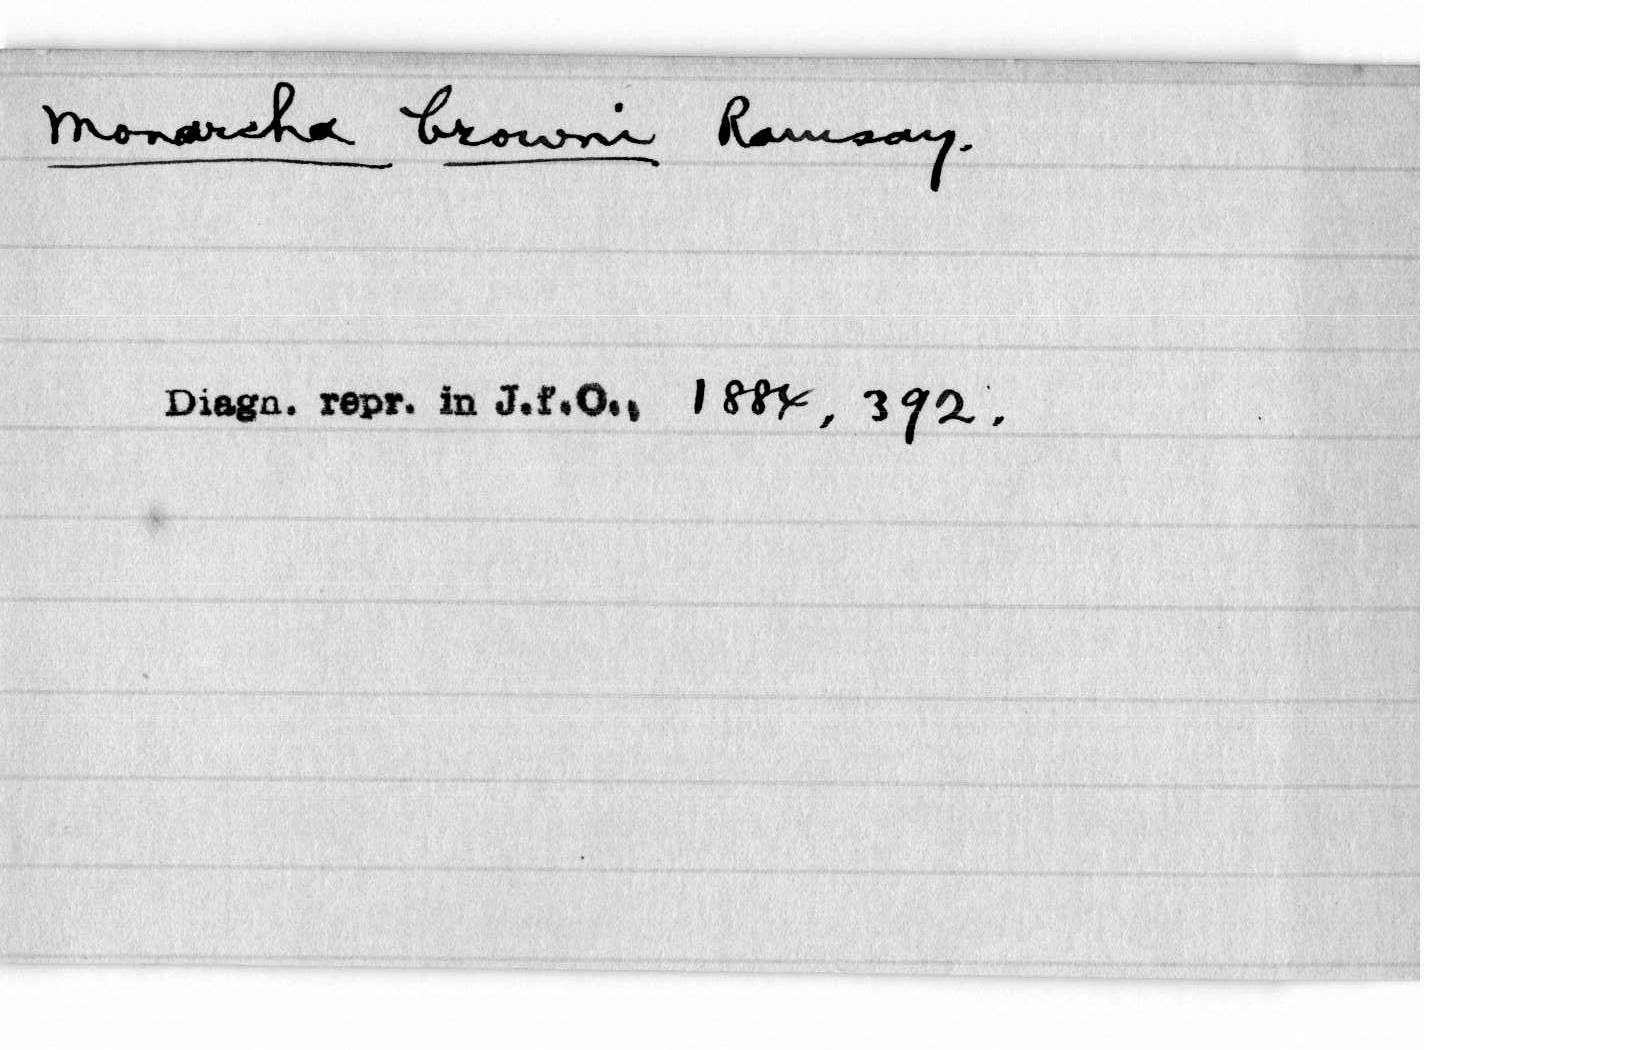 Monarcha browni Ramsay.
Diagn. repr. in J.f.O., 1884, 392.